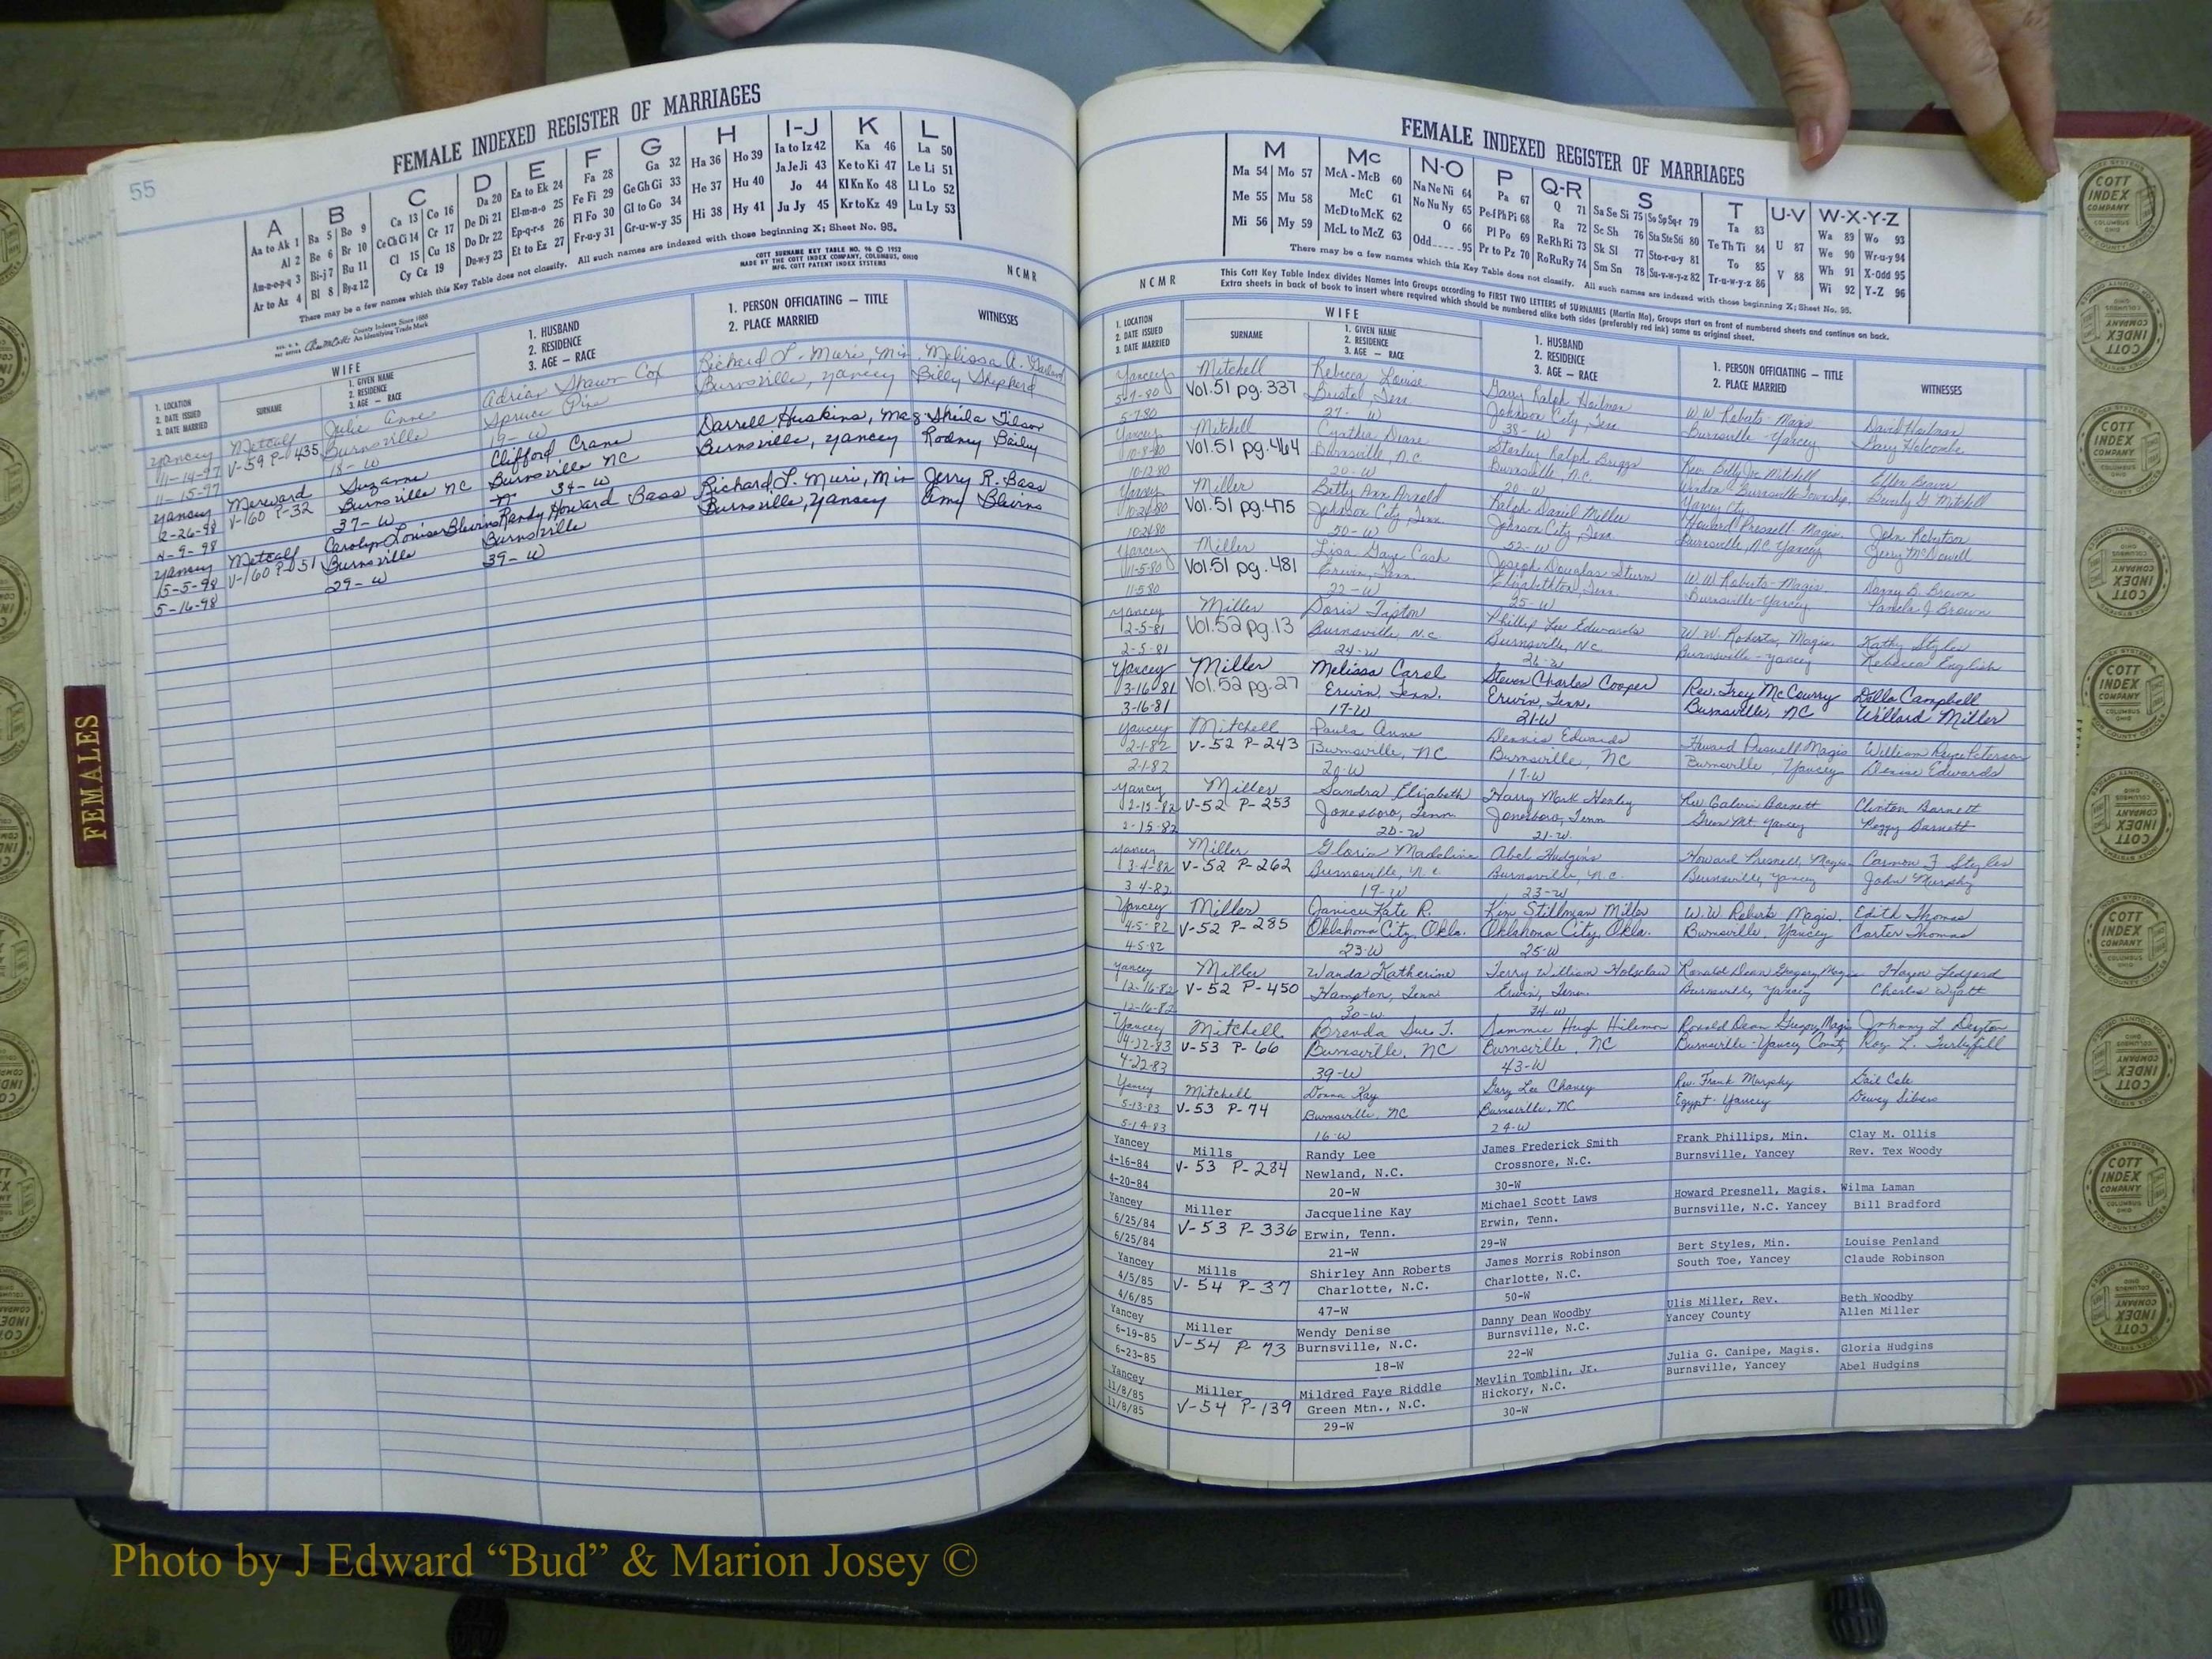 55
FEMALE INDEXED REGISTER OF MARRIAGES
A B C D E F G H I-J K L
Aa to Ak 1 Ba 5 Bo 9 Ca 13 Co 16 Da 20 Ea to Ek 24 Fa 28 Ga 32 Ha 36 Ho 39 Ia to Iz 42 Ka 46 La 50
Al 2 Be 6 Br 10 Ce Ch Ci 14 Cr 17 De Di 21 El-m-n-o 25 Fe Fi 29 Ge Gh Gi 33 He 37 Hu 40 Ja Je Ji 43 Ke to Ki 47 Le Li 51
Am-n-o-p-q 3 Bi-j 7 Bu 11 Cl 15 Cu 18 Do Dr 22 Ep-q-r-s 26 Fl Fo 30 Gl to Go 34 Hi 38 Hy 41 Jo 44 Kl Kn Ko 48 Ll Lo 52
Ar to Az 4 Bl 8 By-z 12 Cy Cz 19 Du-w-y 23 Et to Ez 27 Fr-u-y 31 Gr-u-w-y 35 Ju Jy 45 Kr to Kz 49 Lu Ly 53
There may be a few names which this Key Table does not classify. All such names are indexed with those beginning X; Sheet No. 95.
COTT SURNAME KEY TABLE NO. 96 © 1952
MADE BY THE COTT INDEX COMPANY, COLUMBUS, OHIO
MFG. COTT PATENT INDEX SYSTEMS
NCMR
County Indexes Since 1888
An Identifying Trade Mark
WIFE
1. LOCATION
2. DATE ISSUED
3. DATE MARRIED
SURNAME
1. GIVEN NAME
2. RESIDENCE
3. AGE — RACE
1. HUSBAND
2. RESIDENCE
3. AGE — RACE
1. PERSON OFFICIATING — TITLE
2. PLACE MARRIED
WITNESSES
Yancey Metcalf Julie Anne Adrian Shawn Cox Richard L. Muri, Min. Melissa A.
11-14-97 V-59 P-435 Burnsville Spruce Pine Burnsville, Yancey Billy Shepherd
11-15-97 18-W 19-W
Yancey Merward Suzanne Clifford Crane Darrell Huskins, Mag Sheila Tilson
2-26-98 V-160 P-32 Burnsville NC Burnsville NC Burnsville, Yancey Rodney Bailey
4-9-98 37-W 34-W
Yancey Metcalf Carolyn Louise Blevins Randy Howard Bass Richard L. Muri, Min Jerry R. Bass
5-5-98 V-160 P-151 Burnsville Burnsville Burnsville, Yancey Amy Blevins
5-16-98 29-W 39-W
FEMALES
FEMALE INDEXED REGISTER OF MARRIAGES
M Mc N-O P Q-R S T U-V W-X-Y-Z
Ma 54 Mo 57 McA - McB 60 Na Ne Ni 64 Pa 67 Q 71 Sa Se Si 75 So Sp Sq-r 79 Ta 83 U 87 Wa 89 Wo 93
Me 55 Mu 58 McC 61 No Nu Ny 65 Pe-f Ph Pi 68 Ra 72 Sc Sh 76 Sta Ste Sti 80 Te Th Ti 84 V 88 We 90 Wr-u-y 94
Mi 56 My 59 McD to McK 62 O 66 Pl Po 69 Re Rh Ri 73 Sk Sl 77 Sto-r-u-y 81 To 85 Wh 91 X-Odd 95
McL to McZ 63 Odd 95 Pr to Pz 70 Ro Ru Ry 74 Sm Sn 78 Su-v-w-y-z 82 Tr-u-w-y-z 86 Wi 92 Y-Z 96
There may be a few names which this Key Table does not classify. All such names are indexed with those beginning X; Sheet No. 95.
NCMR
This Cott Key Table Index divides Names into Groups according to FIRST TWO LETTERS of SURNAMES (Martin Ma), Groups start on front of numbered sheets and continue on back.
Extra sheets in back of book to insert where required which should be numbered alike both sides (preferably red ink) same as original sheet.
WIFE
1. LOCATION
2. DATE ISSUED
3. DATE MARRIED
SURNAME
1. GIVEN NAME
2. RESIDENCE
3. AGE — RACE
1. HUSBAND
2. RESIDENCE
3. AGE — RACE
1. PERSON OFFICIATING — TITLE
2. PLACE MARRIED
WITNESSES
Yancey Mitchell Rebecca Louise Garry Ralph W.W. Roberts-Magis David
5-7-80 Vol. 51 pg. 337 Bristol, Tenn Johnson City, Tenn Burnsville-Yancey Gary Holcombe
5-7-80 27-W 38-W
Yancey Mitchell Cynthia Diane Stanley Ralph Briggs Rev. Billy Joe Mitchell Ellen Beaver
10-8-80 Vol. 51 pg. 464 Burnsville, N.C. Burnsville, N.C. Burnsville Township, Beverly G. Mitchell
10-12-80 20-W 20-W Yancey Cty.
Yancey Miller Betty Ann Arnold Ralph Daniel Miller Howard Presnell Magis John Robertson
10-24-80 Vol. 51 pg. 475 Johnson City, Tenn. Johnson City, Tenn Burnsville, N.C. Yancey Jerry McDowell
10-24-80 50-W 52-W
Yancey Miller Lisa Gaye Cash Joseph Douglas Sturm W.W. Roberts-Magis. Danny B. Brown
11-5-80 Vol. 51 pg. 481 Erwin, Tenn. Elizabethton, Tenn. Burnsville-Yancey Pamela J. Brown
11-5-80 22-W 25-W
Yancey Miller Doris Tipton Phillip Lee Edwards W.W. Roberts, Magis Kathy Styles
2-5-81 Vol. 52 pg. 13 Burnsville, N.C. Burnsville, N.C. Burnsville-Yancey Rebecca English
2-5-81 24-W 26-W
Yancey Miller Melissa Carol Steven Charles Cooper Rev. Troy McCourry Della Campbell
3-16-81 Vol. 52 pg. 27 Erwin, Tenn. Erwin, Tenn. Burnsville, NC Willard Miller
3-16-81 17-W 21-W
Yancey Mitchell Paula Anne Dennis Edwards Howard Presnell Magis William Peterson
2-1-82 V-52 P-243 Burnsville, NC Burnsville, NC Burnsville, Yancey Denise Edwards
2-1-82 20-W 17-W
Yancey Miller Sandra Elizabeth Harry Mark Henley Rev Calvin Barnett Clinton Barnett
2-15-82 V-52 P-253 Jonesboro, Tenn Jonesboro, Tenn Green Mt. Yancey Peggy Barnett
2-15-82 20-W 21-W
Yancey Miller Gloria Madeline Abel Hudgins Howard Presnell, Magis Carmon F Styles
3-4-82 V-52 P-262 Burnsville, N.C. Burnsville, N.C. Burnsville, Yancey John Murphy
3-4-82 19-W 23-W
Yancey Miller Janice Kate R. Kim Stillman Miller W.W. Roberts Magis. Edith Thomas
4-5-82 V-52 P-285 Oklahoma City, Okla. Oklahoma City, Okla. Burnsville, Yancey Carter Thomas
4-5-82 23-W 25-W
Yancey Miller Wanda Katherine Terry William Holsclaw Ronald Dean Gregory, Magis Ledford
12-16-82 V-52 P-450 Hampton, Tenn Erwin, Tenn. Burnsville, Yancey Charles Wyatt
12-16-82 30-W 34-W
Yancey Mitchell Brenda Sue T. Sammie Hugh Hilemon Ronald Dean Gregory, Magis Johnny L Deyton
4-22-83 V-53 P-66 Burnsville, NC Burnsville, NC Burnsville-Yancey County Roy L. Turbyfill
4-22-83 39-W 43-W
Yancey Mitchell Donna Kay Gary Lee Chaney Rev. Frank Murphy Gail Cole
5-13-83 V-53 P-74 Burnsville, NC Burnsville, NC Egypt-Yancey Dewey Silvers
5-14-83 16-W 24-W
Yancey Mills Randy Lee James Frederick Smith Frank Phillips, Min. Clay M. Ollis
4-16-84 V-53 P-284 Newland, N.C. Crossnore, N.C. Burnsville, Yancey Rev. Tex Woody
4-20-84 20-W 30-W
Yancey Miller Jacqueline Kay Michael Scott Laws Howard Presnell, Magis. Wilma Laman
6/25/84 V-53 P-336 Erwin, Tenn. Erwin, Tenn. Burnsville, N.C. Yancey Bill Bradford
6/25/84 21-W 29-W
Yancey Mills Shirley Ann Roberts James Morris Robinson Bert Styles, Min. Louise Penland
4/5/85 V-54 P-37 Charlotte, N.C. Charlotte, N.C. South Toe, Yancey Claude Robinson
4/6/85 47-W 50-W
Yancey Miller Wendy Denise Danny Dean Woodby Ulis Miller, Rev. Beth Woodby
6-19-85 V-54 P 73 Burnsville, N.C. Burnsville, N.C. Yancey County Allen Miller
6-23-85 18-W 22-W
Yancey Miller Mildred Faye Riddle Mevlin Tomblin, Jr. Julia G. Canipe, Magis. Gloria Hudgins
11/8/85 V-54 P-139 Green Mtn., N.C. Hickory, N.C. Burnsville, Yancey Abel Hudgins
11/8/85 29-W 30-W
COTT
INDEX
COMPANY
COLUMBUS
OHIO
Photo by J Edward “Bud” & Marion Josey ©